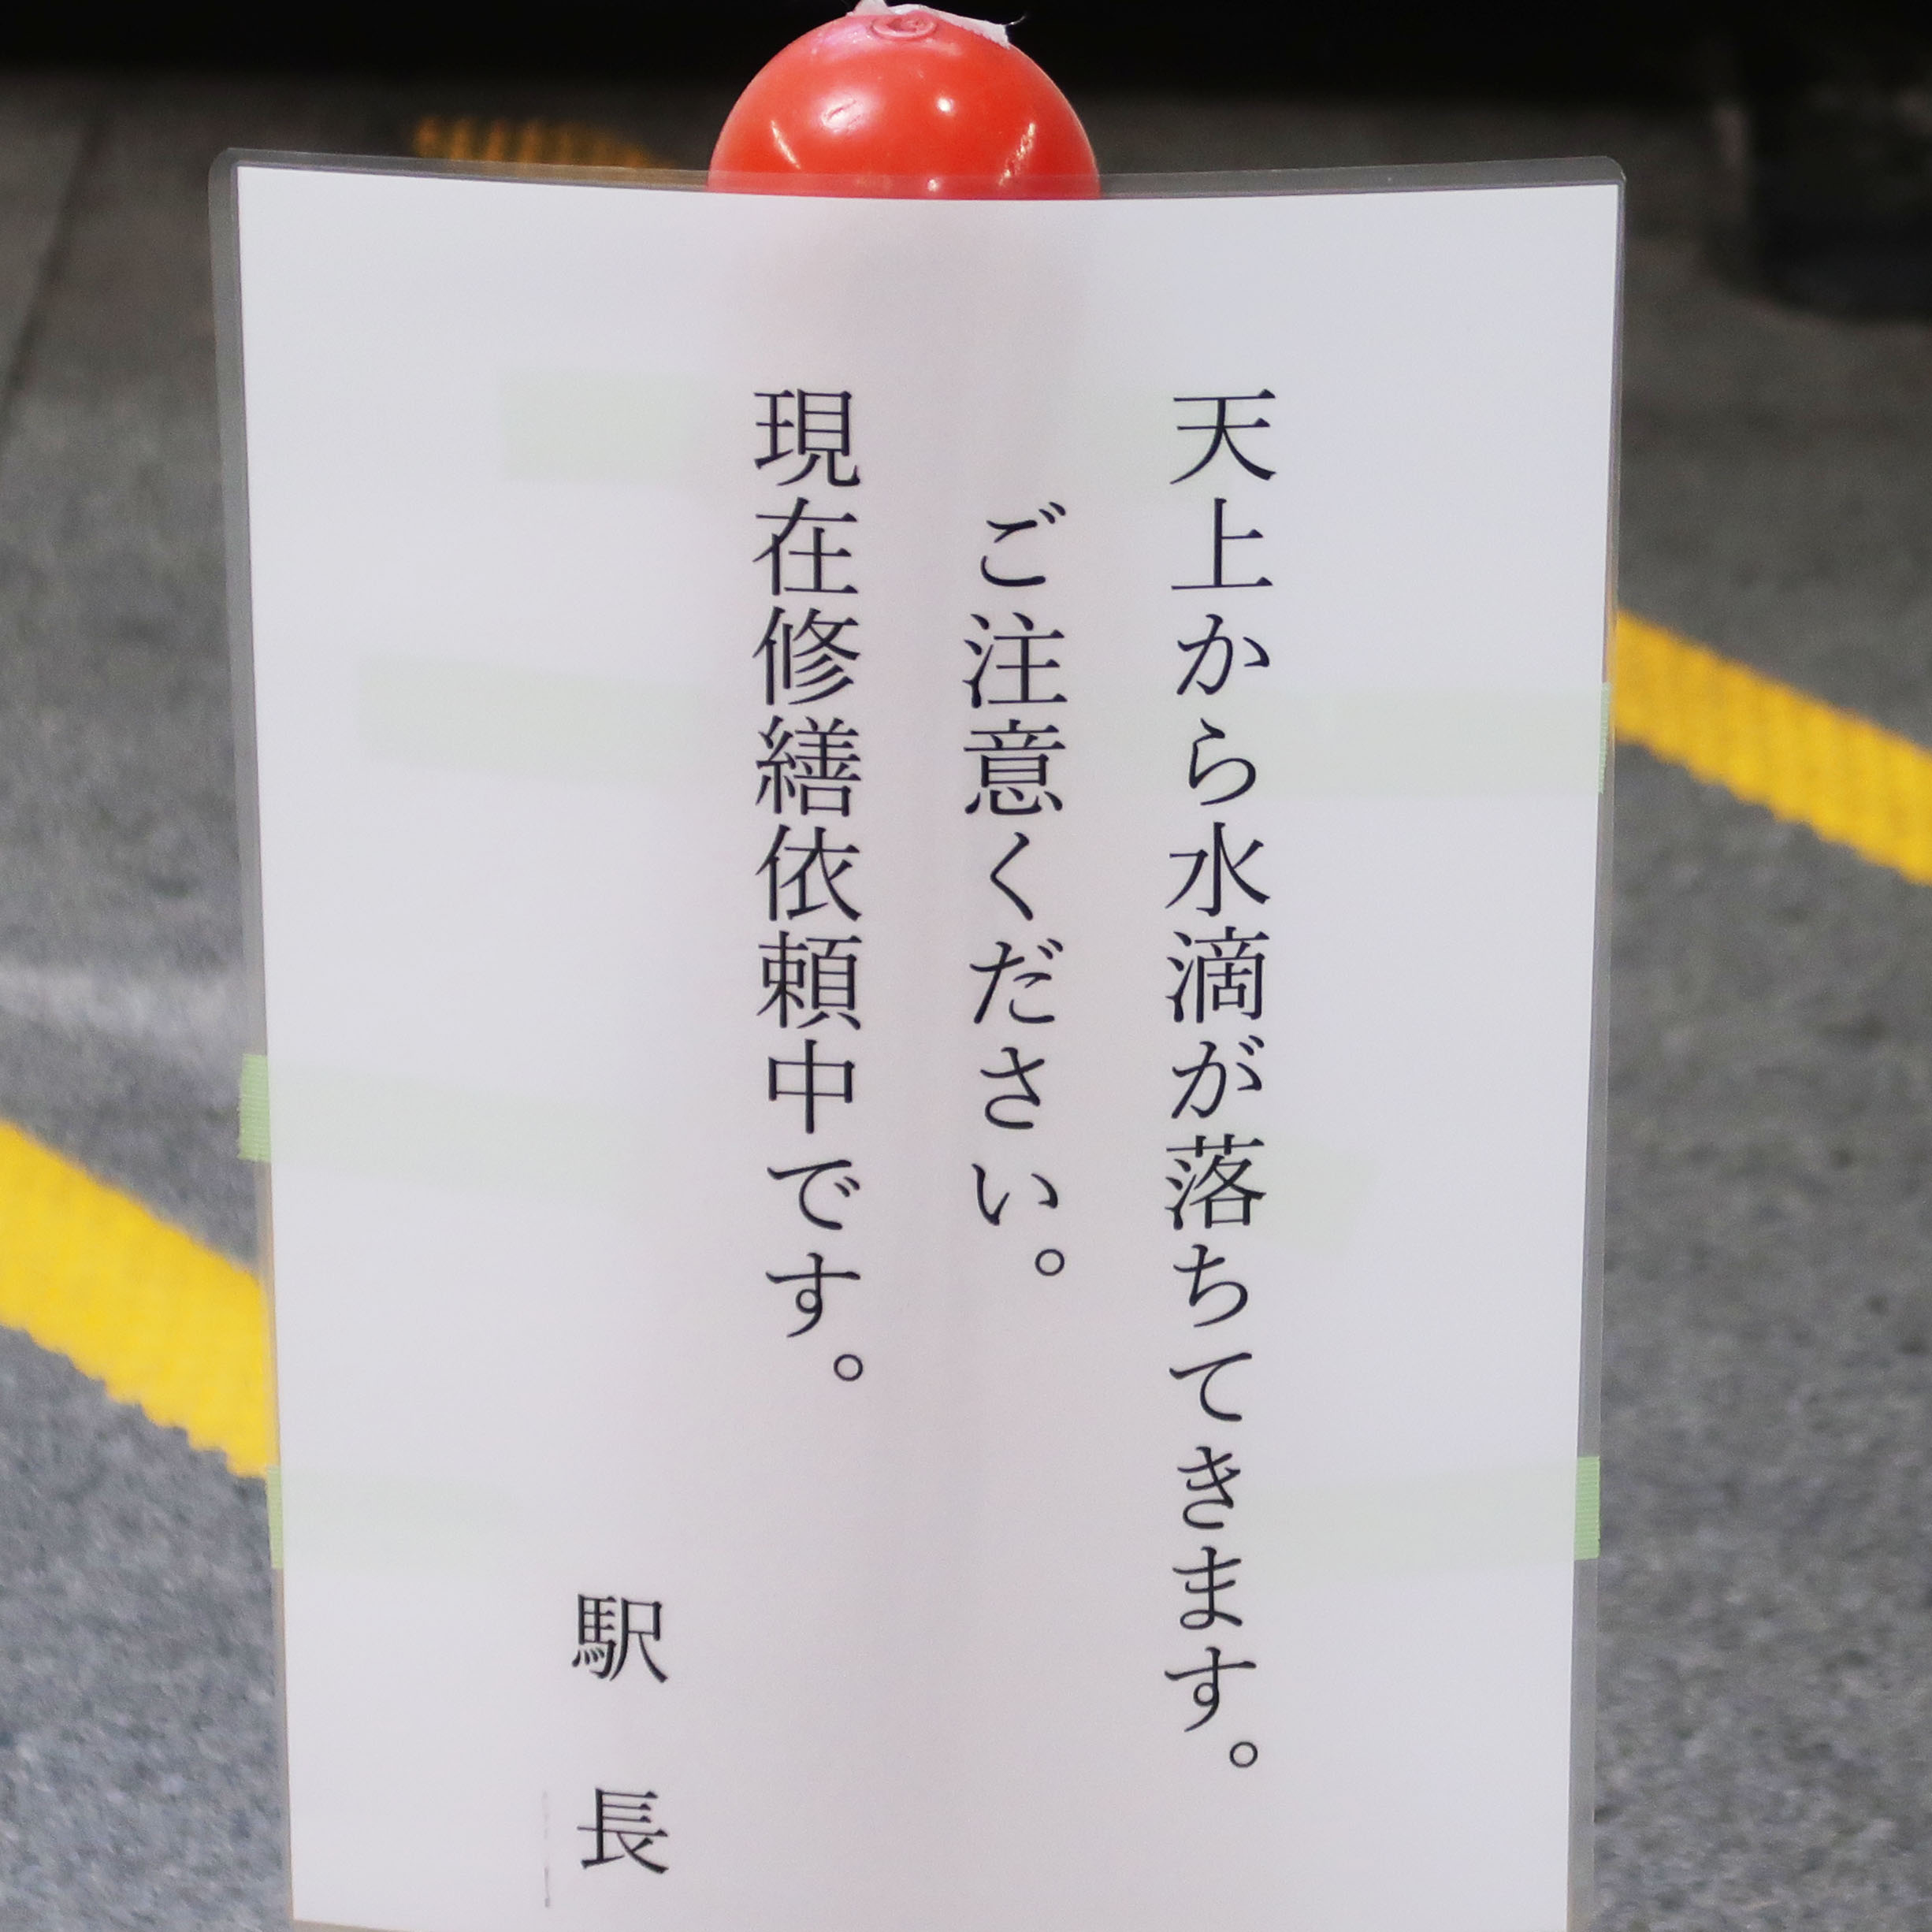 天上から水滴が落ちてきます。
ご注意ください。
現在修繕依頼中です。
駅 長